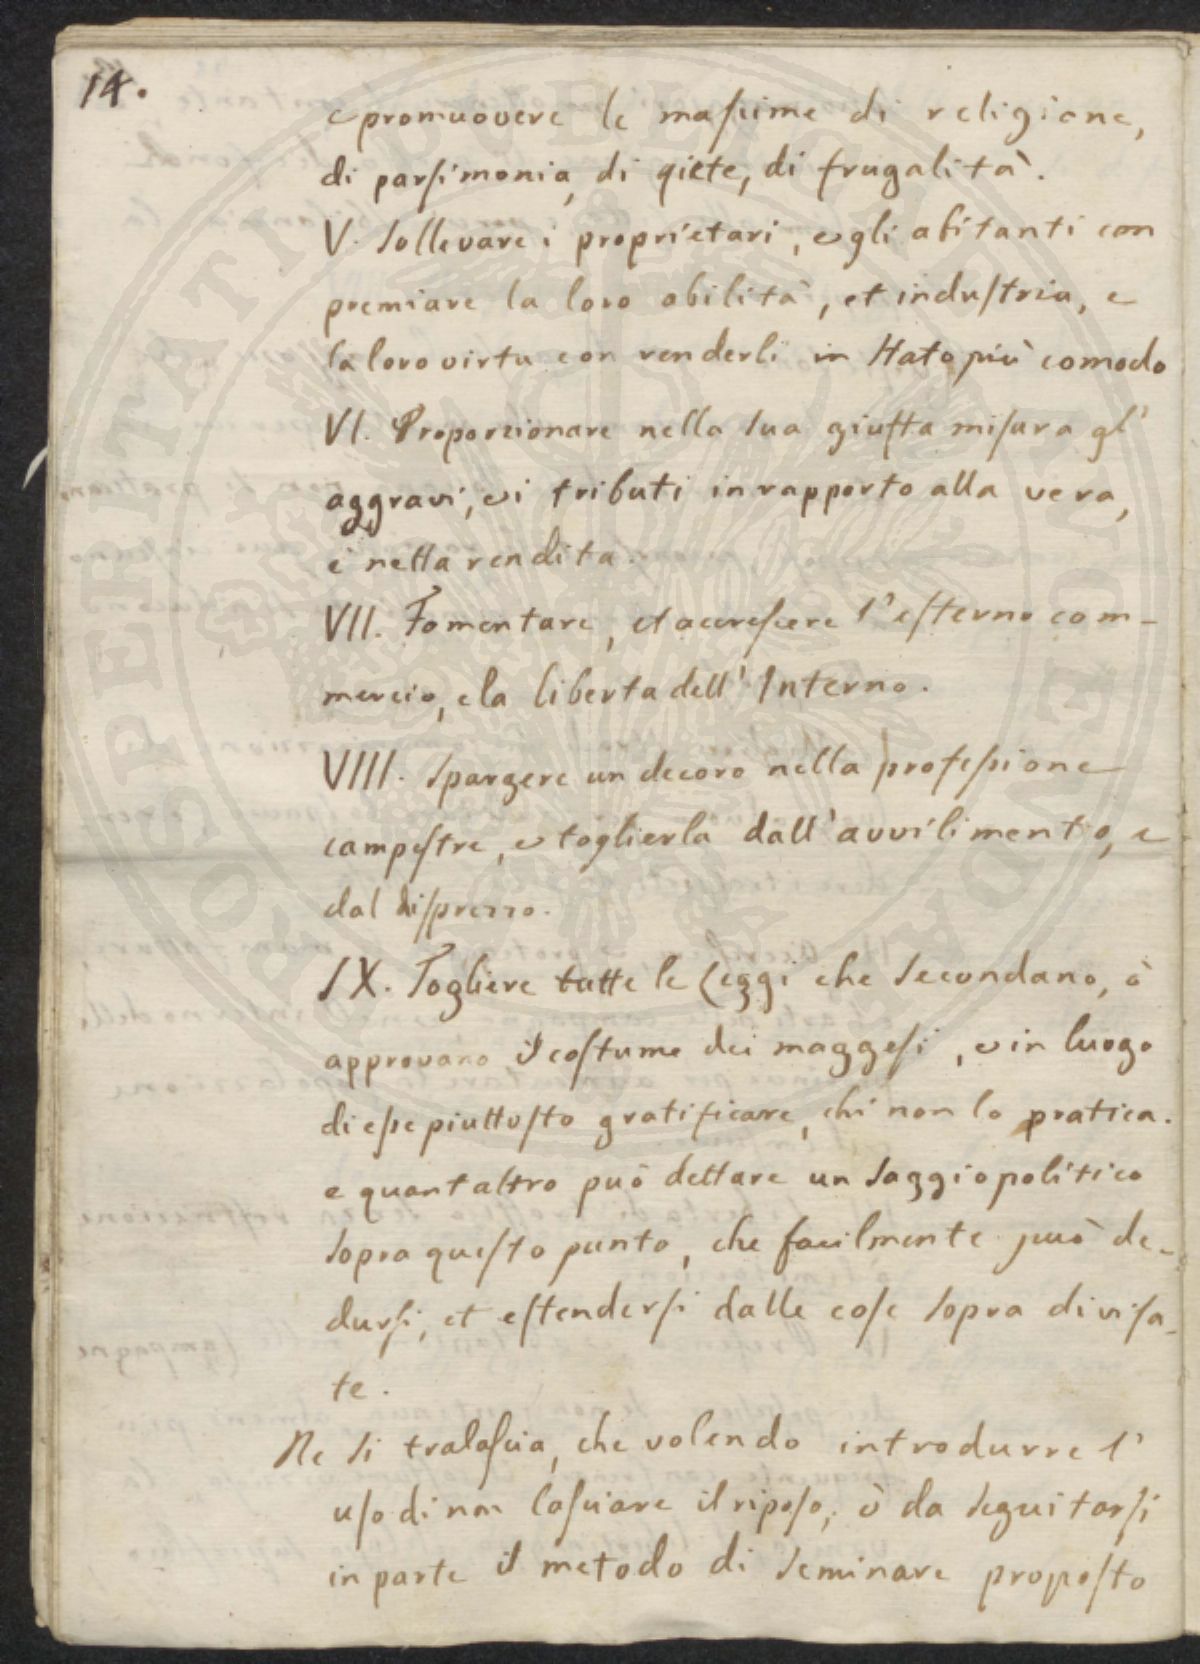 14.
e promuovere le massime di religione,
di parsimonia, di qiete, di frugalità.
V. Sollevare i proprietari, e gli abitanti con
premiare la loro abilità, et industria, e
la loro virtu con renderli in stato più comodo
VI. Proporzionare nella sua giusta misura gl'
aggravi, e i tributi in rapporto alla vera,
e netta rendita.
VII. Fomentare, et accrescere l'esterno com-
mercio, e la liberta dell'Interno.
VIII. Spargere un decoro nella professione
campestre, e toglierla dall'avvilimento, e
dal disprezzo.
IX. Togliere tutte le Leggi che secondano, ò
approvano il costume dei maggesi, e in luogo
di esse piuttosto gratificare, chi non lo pratica.
e quant altro può dettare un saggio politico
sopra questo punto, che facilmente può de-
dursi, et estendersi dalle cose sopra divisa-
te.
Ne si tralascia, che volendo introdurre l'
uso di non lasciare il riposo, ò da seguitarsi
in parte il metodo di seminare proposto
PROSPERITATI PUBLICAE AUGENDAE